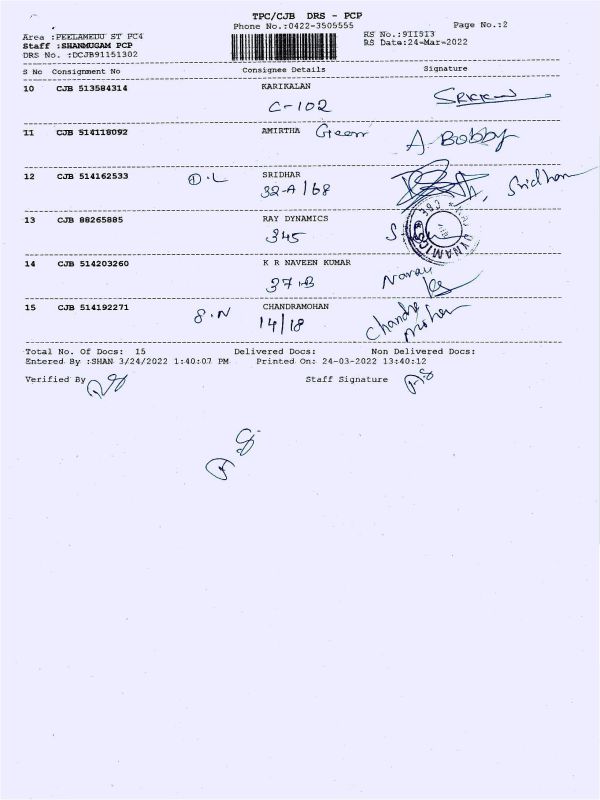 TPC/CJB DRS - PCP
Phone No.:0422-3505555 Page No.:2
Area :PEELAMEDU ST PC4 RS No.:911513
Staff :SHANMUGAM PCP RS Date:24-Mar-2022
DRS No. :DCJB91151302
S No Consignment No Consignee Details Signature
10 CJB 513584314 KARIKALAN
C-102
11 CJB 514118092 AMIRTHA Green A. Bobby
12 CJB 514162533 D.L SRIDHAR Sridhar
32-A/68
13 CJB 88265885 RAY DYNAMICS
345
14 CJB 514203260 K R NAVEEN KUMAR
37-B
15 CJB 514192271 S.N CHANDRAMOHAN Chandra
14/18 mohan
Total No. Of Docs: 15 Delivered Docs: Non Delivered Docs:
Entered By :SHAN 3/24/2022 1:40:07 PM Printed On: 24-03-2022 13:40:12
Verified By Staff Signature